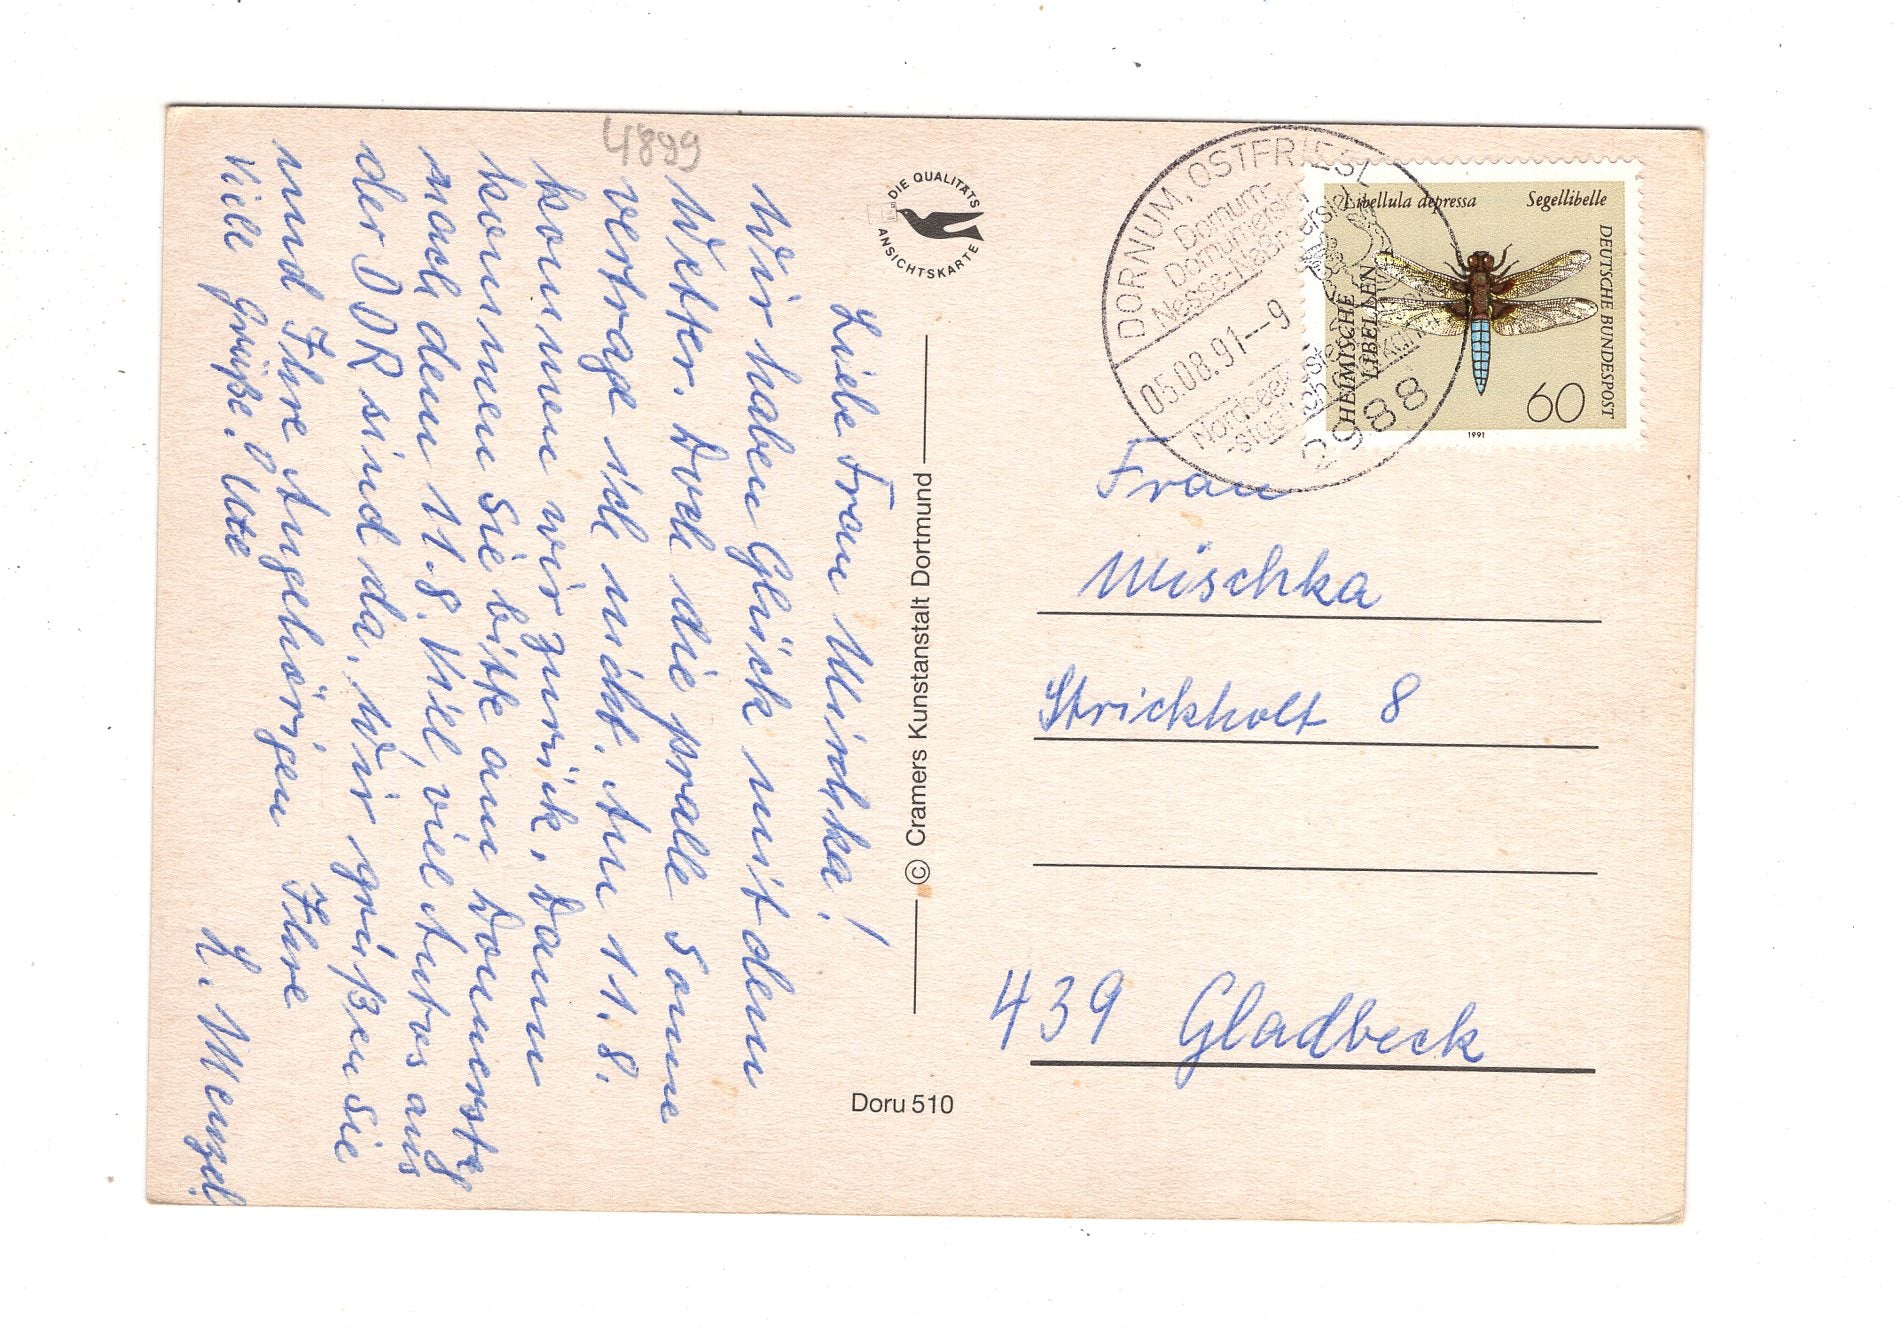 4899
Liebe Frau Mischka!
Wir haben Glück mit dem
Wetter. Doch die pralle Sonne
vertrage ich nicht. Am 11.8.
kommen wir zurück. Dann
kommen Sie bitte am Donnerstag
nach dem 11.8. Viel, viel Autos aus
der DDR sind da. Wir grüßen Sie
und Ihre Angehörigen Ihre
Viele Grüße. Ute
H. Menzel
DIE QUALITÄTS
ANSICHTSKARTE
© Cramers Kunstanstalt Dortmund
Doru 510
DORNUM, OSTFRIESL
Dornum-
Dornumersiel
Nesse-Neßm
05.08.91--9
Nordsee
2988
Libellula depressa Segellibelle
HEIMISCHE
LIBELLEN
DEUTSCHE BUNDESPOST
60
1991
Frau
Mischka
Strickholt 8
439 Gladbeck